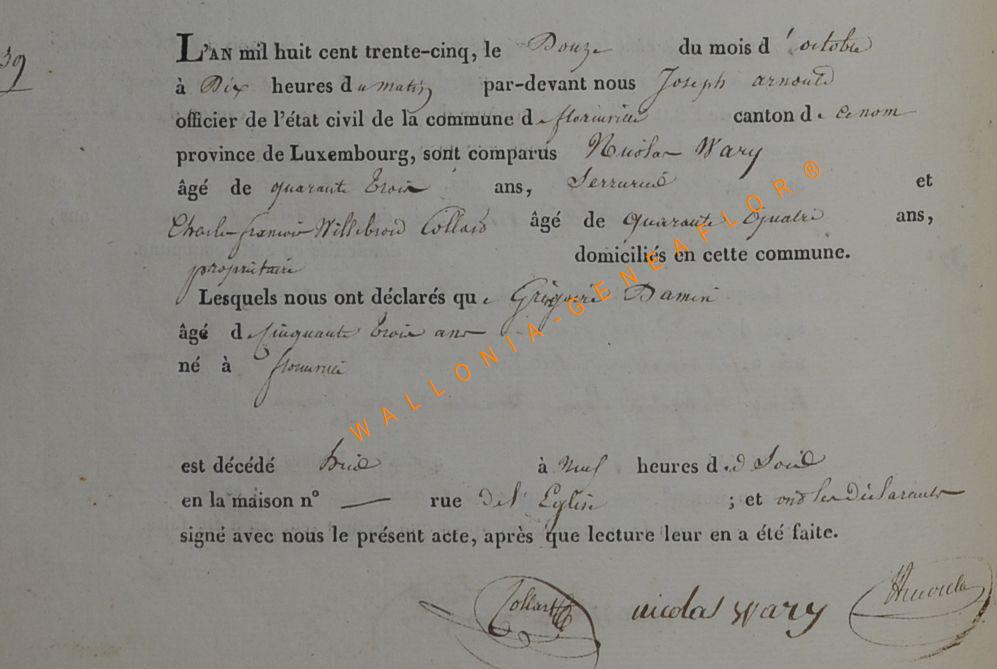 39
L'AN mil huit cent trente-cinq, le Douze du mois d'octobre
à Dix heures du matin par-devant nous Joseph arnould
officier de l'état civil de la commune de florenville canton de ce nom
province de Luxembourg, sont comparus Nicolas Wary
âgé de quarante trois ans, Serrurier et
Charles françois Willibrord Collard âgé de quarante quatre ans,
propriétaire domiciliés en cette commune.
Lesquels nous ont déclarés que Grégoire Damin
âgé de Cinquante trois ans
né à florenville
est décédé hier à Neuf heures du Soir
en la maison n° — rue de l'Eglise ; et ont les Déclarants
signé avec nous le présent acte, après que lecture leur en a été faite.
Collard nicolas wary
WALLONIA-GENEAFLOR®